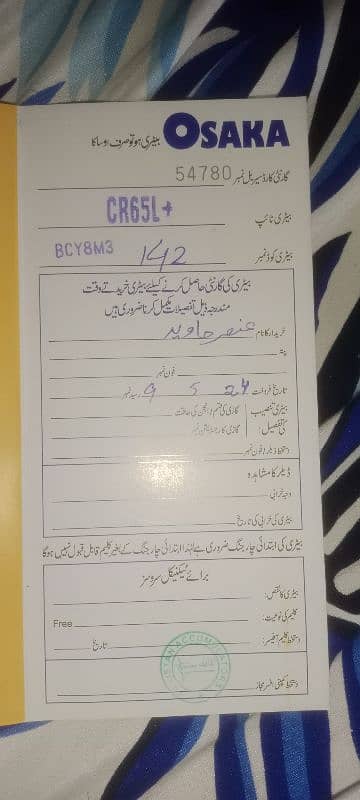 OSAKA بیٹری ہو تو صرف اوساکا
گارنٹی کارڈ سیریل نمبر 54780
بیٹری ٹائپ CR65L+
بیٹری کوڈ نمبر BCY8M3 142
بیٹری کی گارنٹی حاصل کرنے کیلئے بیٹری خریدتے وقت
مندرجہ ذیل تفصیلات مکمل کرنا ضروری ہیں
خریدار کا نام عنصر جاوید
پتہ
فون نمبر
تاریخ فروخت 9 5 24 رسید نمبر
بیٹری تنصیب گاڑی کی قسم / انجن کی طاقت
کی تفصیل: گاڑی کا رجسٹریشن نمبر
دستخط ڈیلر و فون نمبر
ڈیلر کا مشاہدہ
وجہ خرابی
بیٹری کی خرابی کی تاریخ
بیٹری کی ابتدائی چارجنگ ضروری ہے لہٰذا ابتدائی چارجنگ کے بغیر کلیم قابل قبول نہیں ہوگا
برائے ٹیکنیکل سروسز
بیٹری کا نقص:
کلیم کی نوعیت: Free
دستخط کلیم آفیسر: تاریخ
دستخط کمپنی افسر مجاز